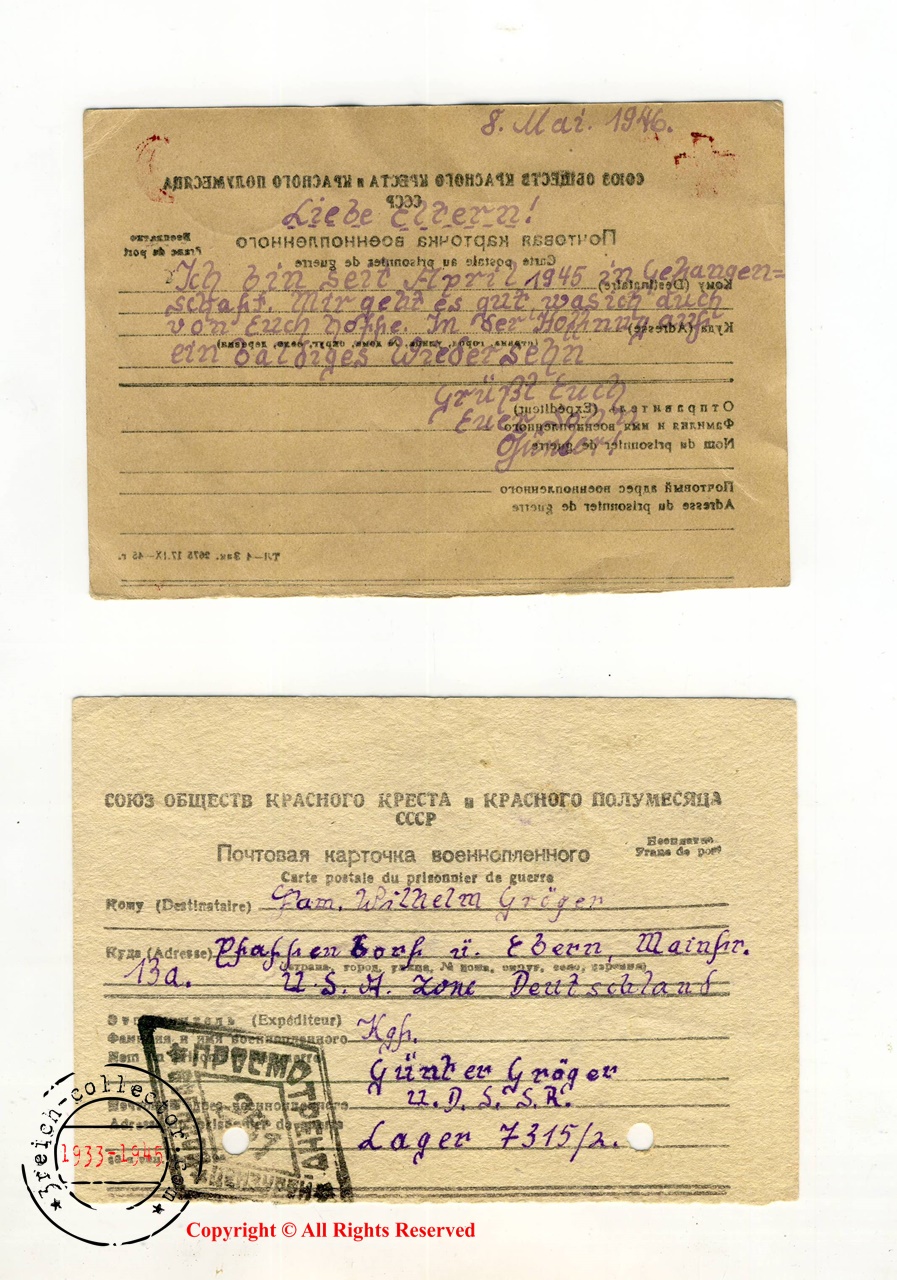 8. Mai. 1946.
СОЮЗ ОБЩЕСТВ КРАСНОГО КРЕСТА и КРАСНОГО ПОЛУМЕСЯЦА
СССР
Liebe Eltern!
Бесплатно
Franc de port
Почтовая карточка военнопленного
Carte postale au prisonnier de guerre
Ich bin seit April 1945 in Gefangen=
Кому (Destinataire)
schaft. Mir geht es gut was ich auch
von Euch hoffe. In der Hoffnung auf
Куда (Adresse)
(страна, город, улица, № дома, округ, село, деревня)
ein baldiges Wiedersehn
Grüßt Euch
Отправитель (Expéditeur)
Euer Sohn
Фамилия и имя военнопленного
Günter!
Nom du prisonnier de guerre
Почтовый адрес военнопленного
Adresse du prisonnier de guerre
Зак. 2675 17.IX—45 г.
СОЮЗ ОБЩЕСТВ КРАСНОГО КРЕСТА и КРАСНОГО ПОЛУМЕСЯЦА
СССР
Бесплатно
Franc de port
Почтовая карточка военнопленного
Carte postale du prisonnier de guerre
Кому (Destinataire) Fam. Wilhelm Gröger
Куда (Adresse) Pfaffendorf ü. Ebern, Mainfr.
(страна, город, улица, № дома, округ, село, деревня)
13a. U.S.A. Zone Deutschland
Отправитель (Expéditeur)
Фамилия и имя военнопленного Kgf.
Günter Gröger
U.D.S.S.R.
Lager 7315/2.
ПРОСМОТРЕНО
3reich-collector.com
1933-1945
Copyright © All Rights Reserved